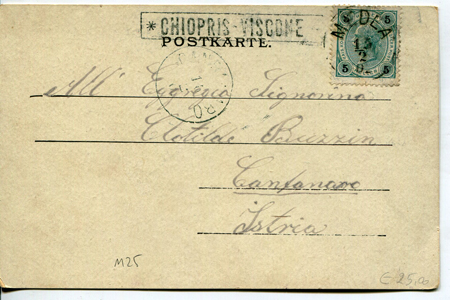 * CHIOPRIS-VISCONE
POSTKARTE.
MEDEA
5 5
5 5
All' Egregia Signorina
Clotilde Buzzin
Canfanaro
Istria
M25
€25,00